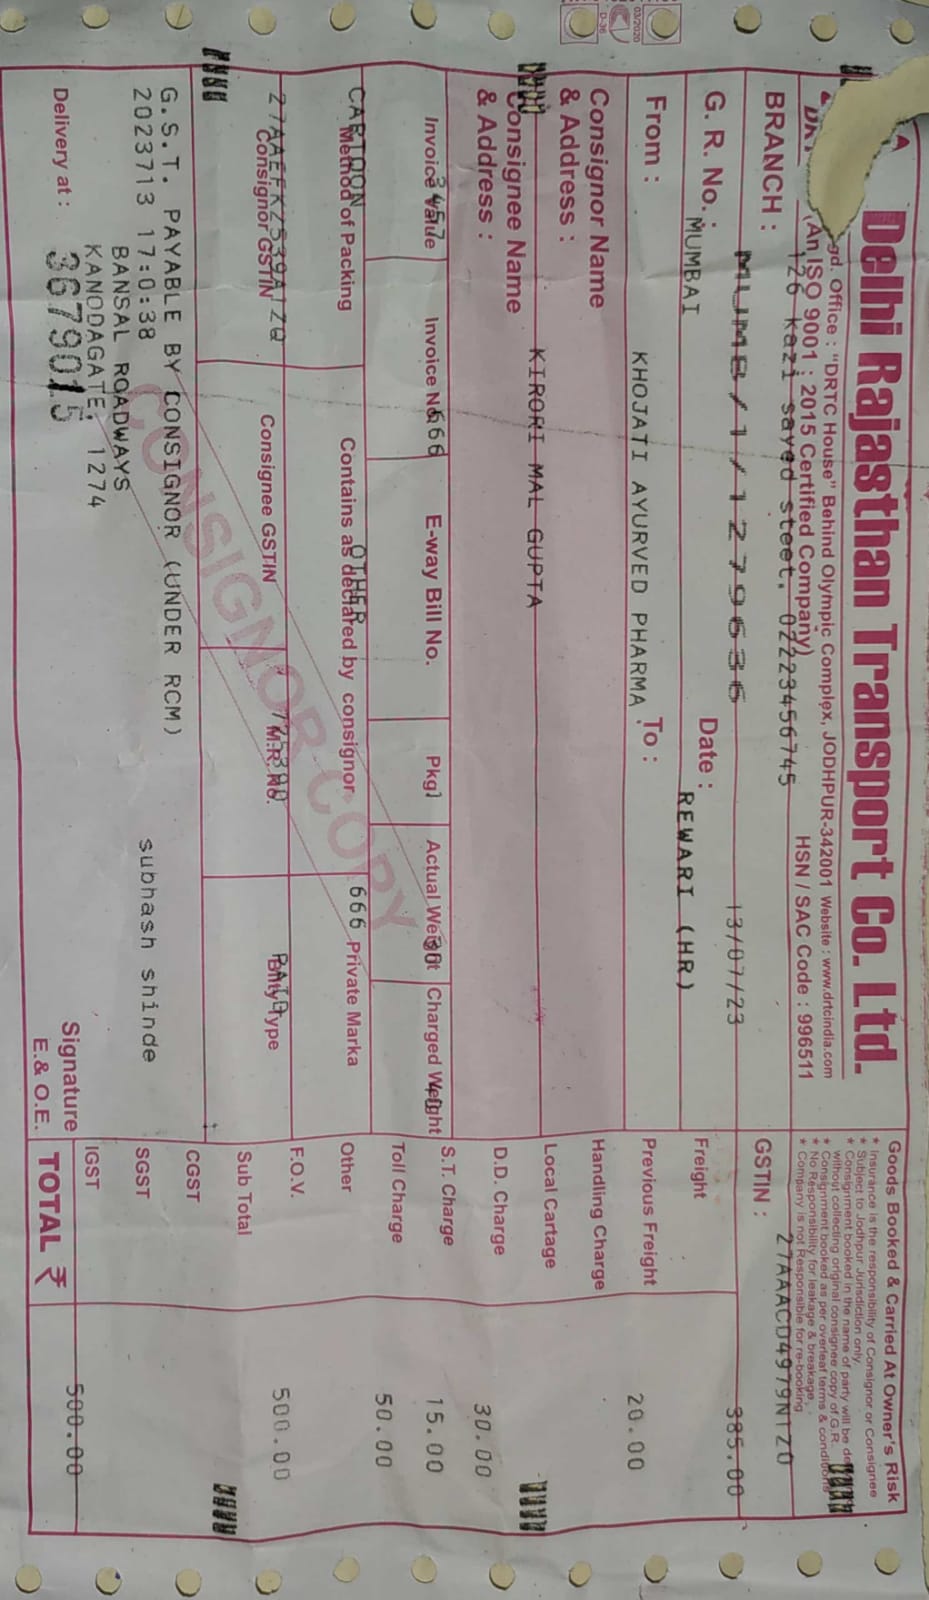 Delhi Rajasthan Transport Co. Ltd.
gd. Office : "DRTC House" Behind Olympic Complex, JODHPUR-342001 Website : www.drtcindia.com
(An ISO 9001 : 2015 Certified Company) HSN / SAC Code : 996511
BRANCH : 126 Kazi sayed steet. 022234567 45
G. R. No. : MUMB/1/1279636 Date : 13/07/23
From : MUMBAI To : REWARI (HR)
Consignor Name
& Address : KHOJATI AYURVED PHARMA
Consignee Name
& Address : KIRORI MAL GUPTA
Invoice Value Invoice No. E-way Bill No. Pkg Actual Weight Charged Weight
3457 666 1 40
Method of Packing Contains as declared by consignor Private Marka
CARTOON OTHER 666
Consignor GSTIN Consignee GSTIN M.R. No. Bilty Type
PAID
G.S.T. PAYABLE BY CONSIGNOR (UNDER RCM)
2023713 17:0:38 subhash shinde
BANSAL ROADWAYS
KANODAGATE, 1274
Delivery at : 3679015
Signature
E.& O.E.
CONSIGNOR COPY
Goods Booked & Carried At Owner's Risk
* Insurance is the responsibility of Consignor or Consignee
* Subject to Jodhpur Jurisdiction only.
* Consignment booked in the name of party will be
without collecting original consignee copy of G.R.
* Consignment booked as per overleaf terms & conditions
* No Responsibility for leakage & breakage.
* Company is not Responsible for re-booking
GSTIN : 27AAACD4979N1Z0
Freight 385.00
Previous Freight 20.00
Handling Charge
Local Cartage
D.D. Charge 30.00
S.T. Charge 15.00
Toll Charge 50.00
Other
F.O.V.
Sub Total 500.00
CGST
SGST
IGST
TOTAL ₹ 500.00
03/2020
D-36